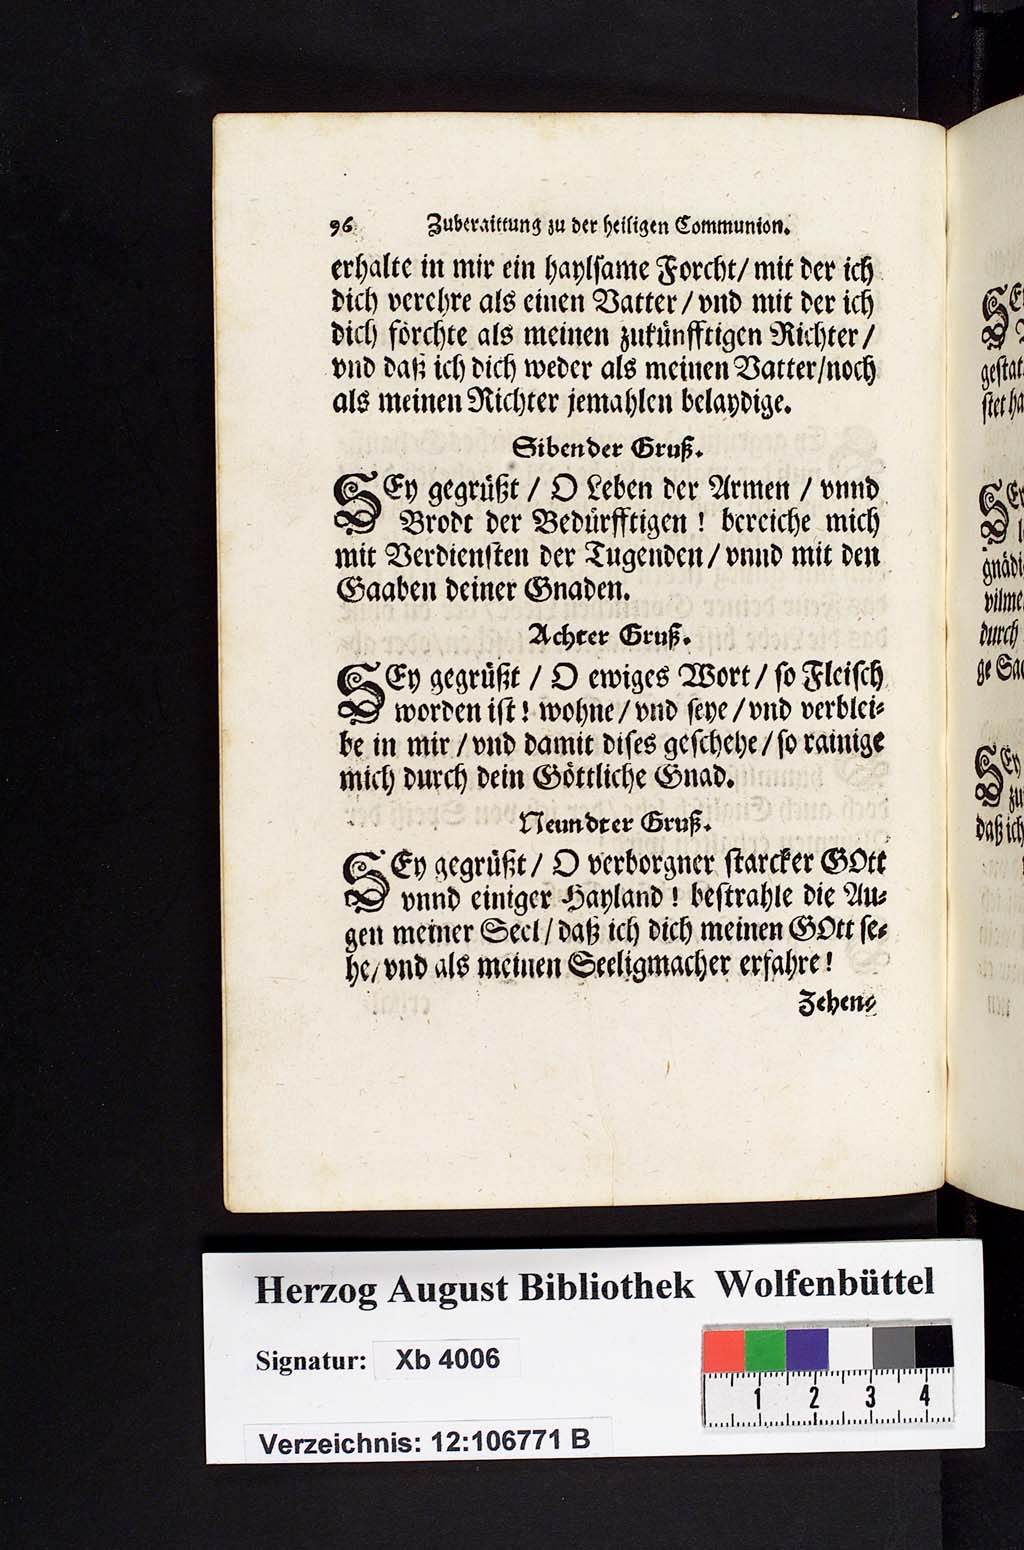 96 Zuberaittung zu der heiligen Communion.
erhalte in mir ein haylsame Forcht/ mit der ich
dich verehre als einen Vatter / vnd mit der ich
dich förchte als meinen zukünfftigen Richter /
vnd daß ich dich weder als meinen Vatter/noch
als meinen Richter jemahlen belaydige.
Sibender Gruß.
SEy gegrüßt / O Leben der Armen / vnnd
Brodt der Bedürfftigen ! bereiche mich
mit Verdiensten der Tugenden / vnnd mit den
Gaaben deiner Gnaden.
Achter Gruß.
SEy gegrüßt / O ewiges Wort / so Fleisch
worden ist ! wohne / vnd seye / vnd verblei⸗
be in mir / vnd damit dises geschehe / so rainige
mich durch dein Göttliche Gnad.
Neundter Gruß.
SEy gegrüßt / O verborgner starcker GOtt
vnnd einiger Hayland ! bestrahle die Au⸗
gen meiner Seel / daß ich dich meinen GOtt se⸗
he/ vnd als meinen Seeligmacher erfahre !
Zehen⸗
SEy
gestat
stet ha
gnädi
vilme
durch
ge Sac
SEy
zu
daß ich
Herzog August Bibliothek Wolfenbüttel
Signatur: Xb 4006
1 2 3 4
Verzeichnis: 12:106771 B